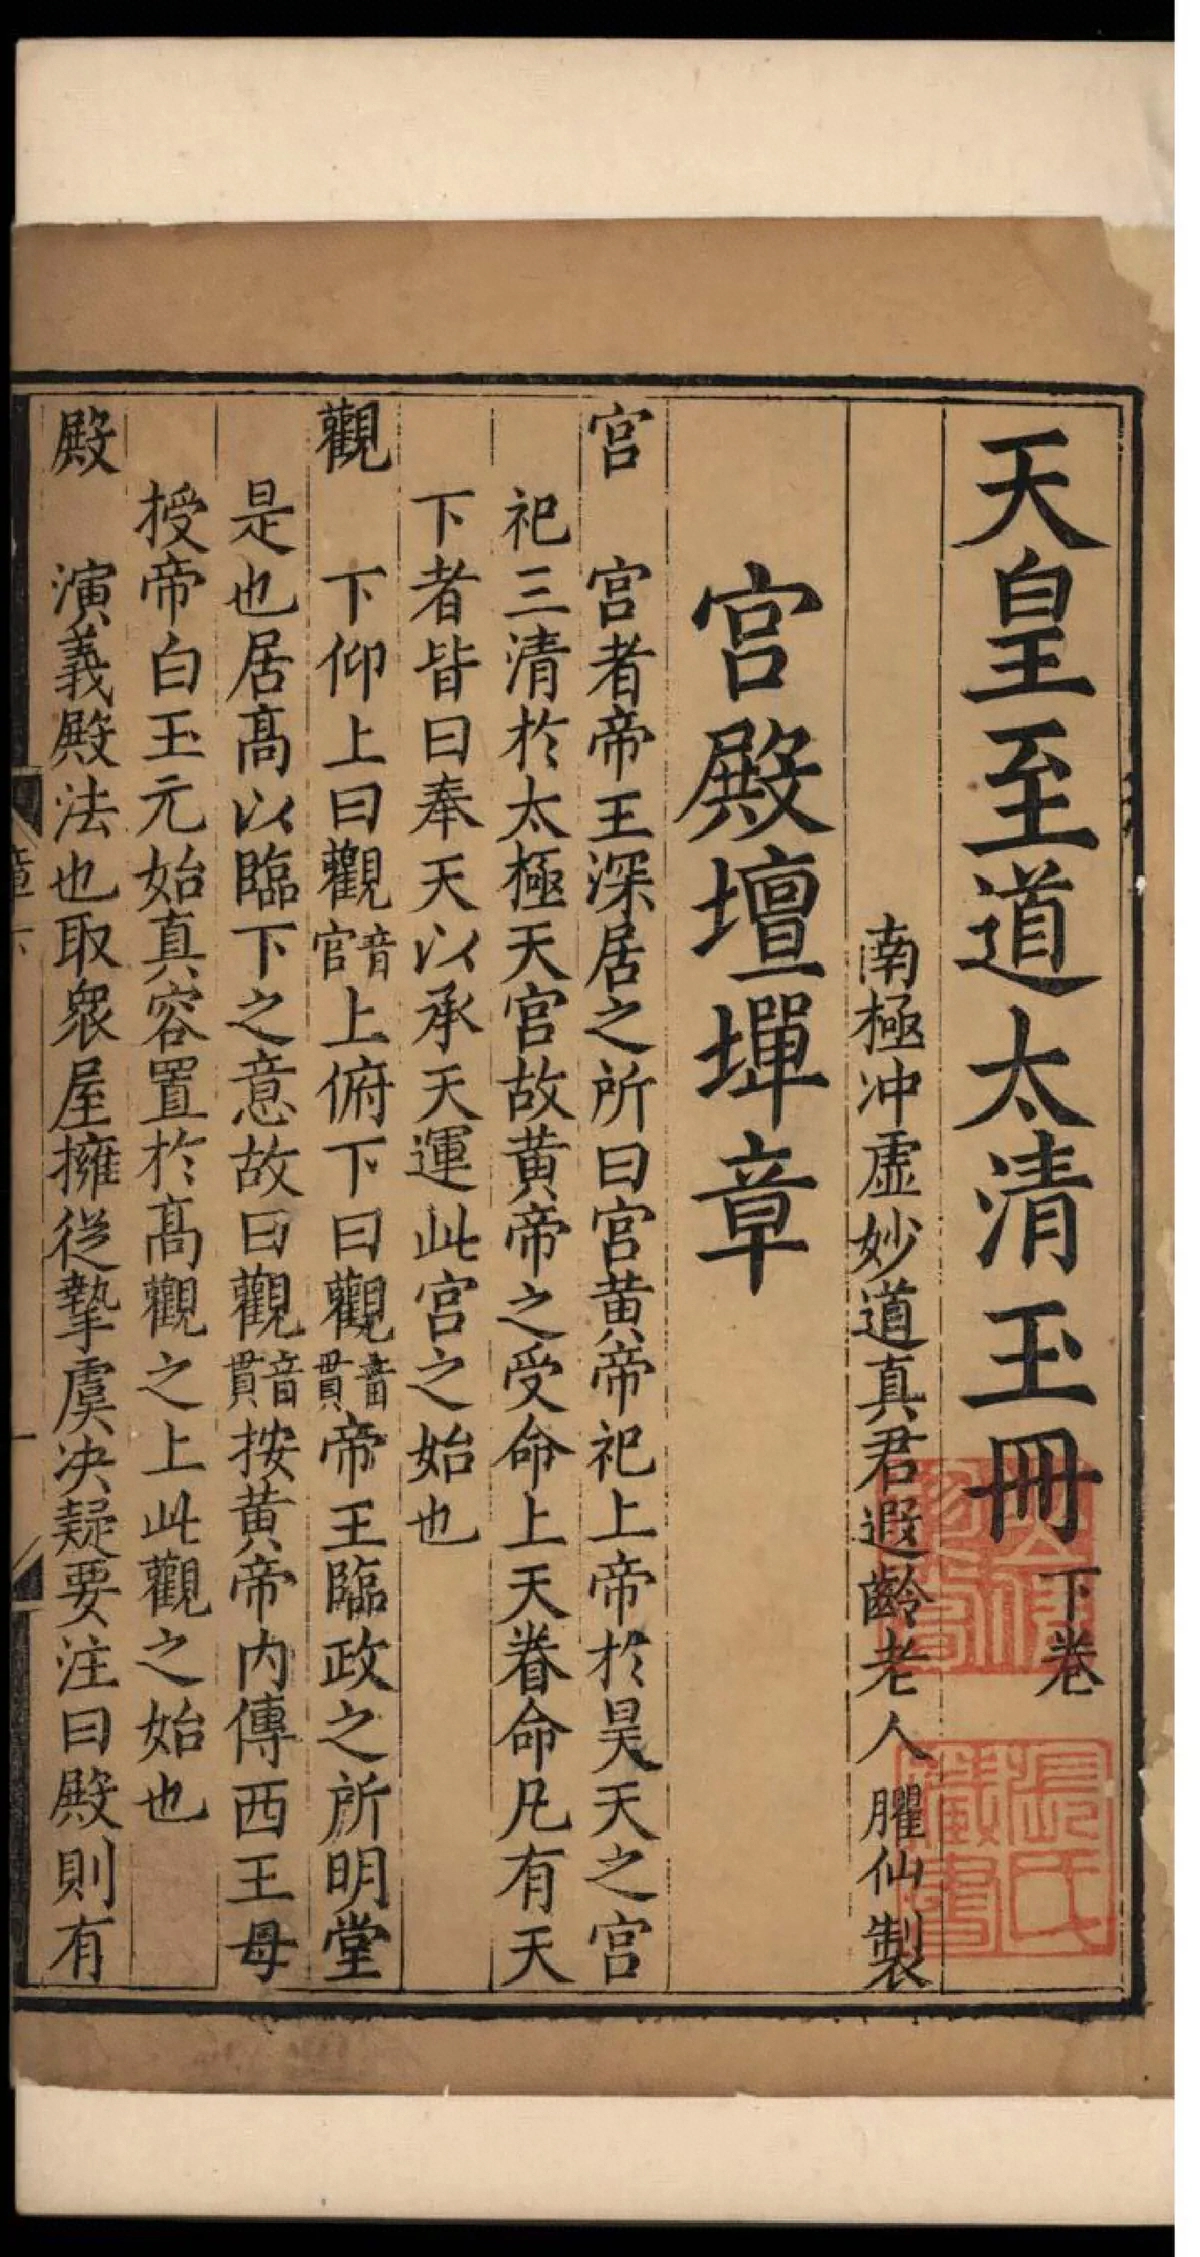 天皇至道太清玉冊 下卷
南極冲虛妙道真君遐齡老人臞仙製
宮殿壇墠章
宮 宮者帝王深居之所曰宮黃帝祀上帝於昊天之宮
祀三清於太極天宮故黃帝之受命上天眷命凡有天
下者皆曰奉天以承天運此宮之始也
觀 下仰上曰觀音官上俯下曰觀音貫帝王臨政之所明堂
是也居髙以臨下之意故曰觀音貫按黃帝内傳西王母
授帝白玉元始真容置於髙觀之上此觀之始也
殿 演義殿法也取衆屋擁從摯虞决疑要注曰殿則有
章下
一
張氏藏書